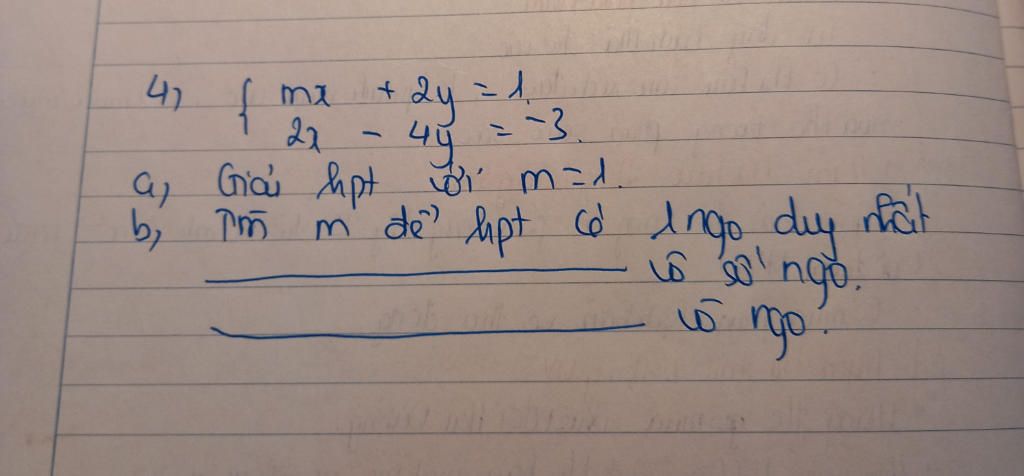 4) { mx + 2y = 1.
2x - 4y = -3.
a, Giải hpt với m=1.
b, Tìm m để hpt có 1 ngo duy nhất
vô số ngo.
vô ngo.